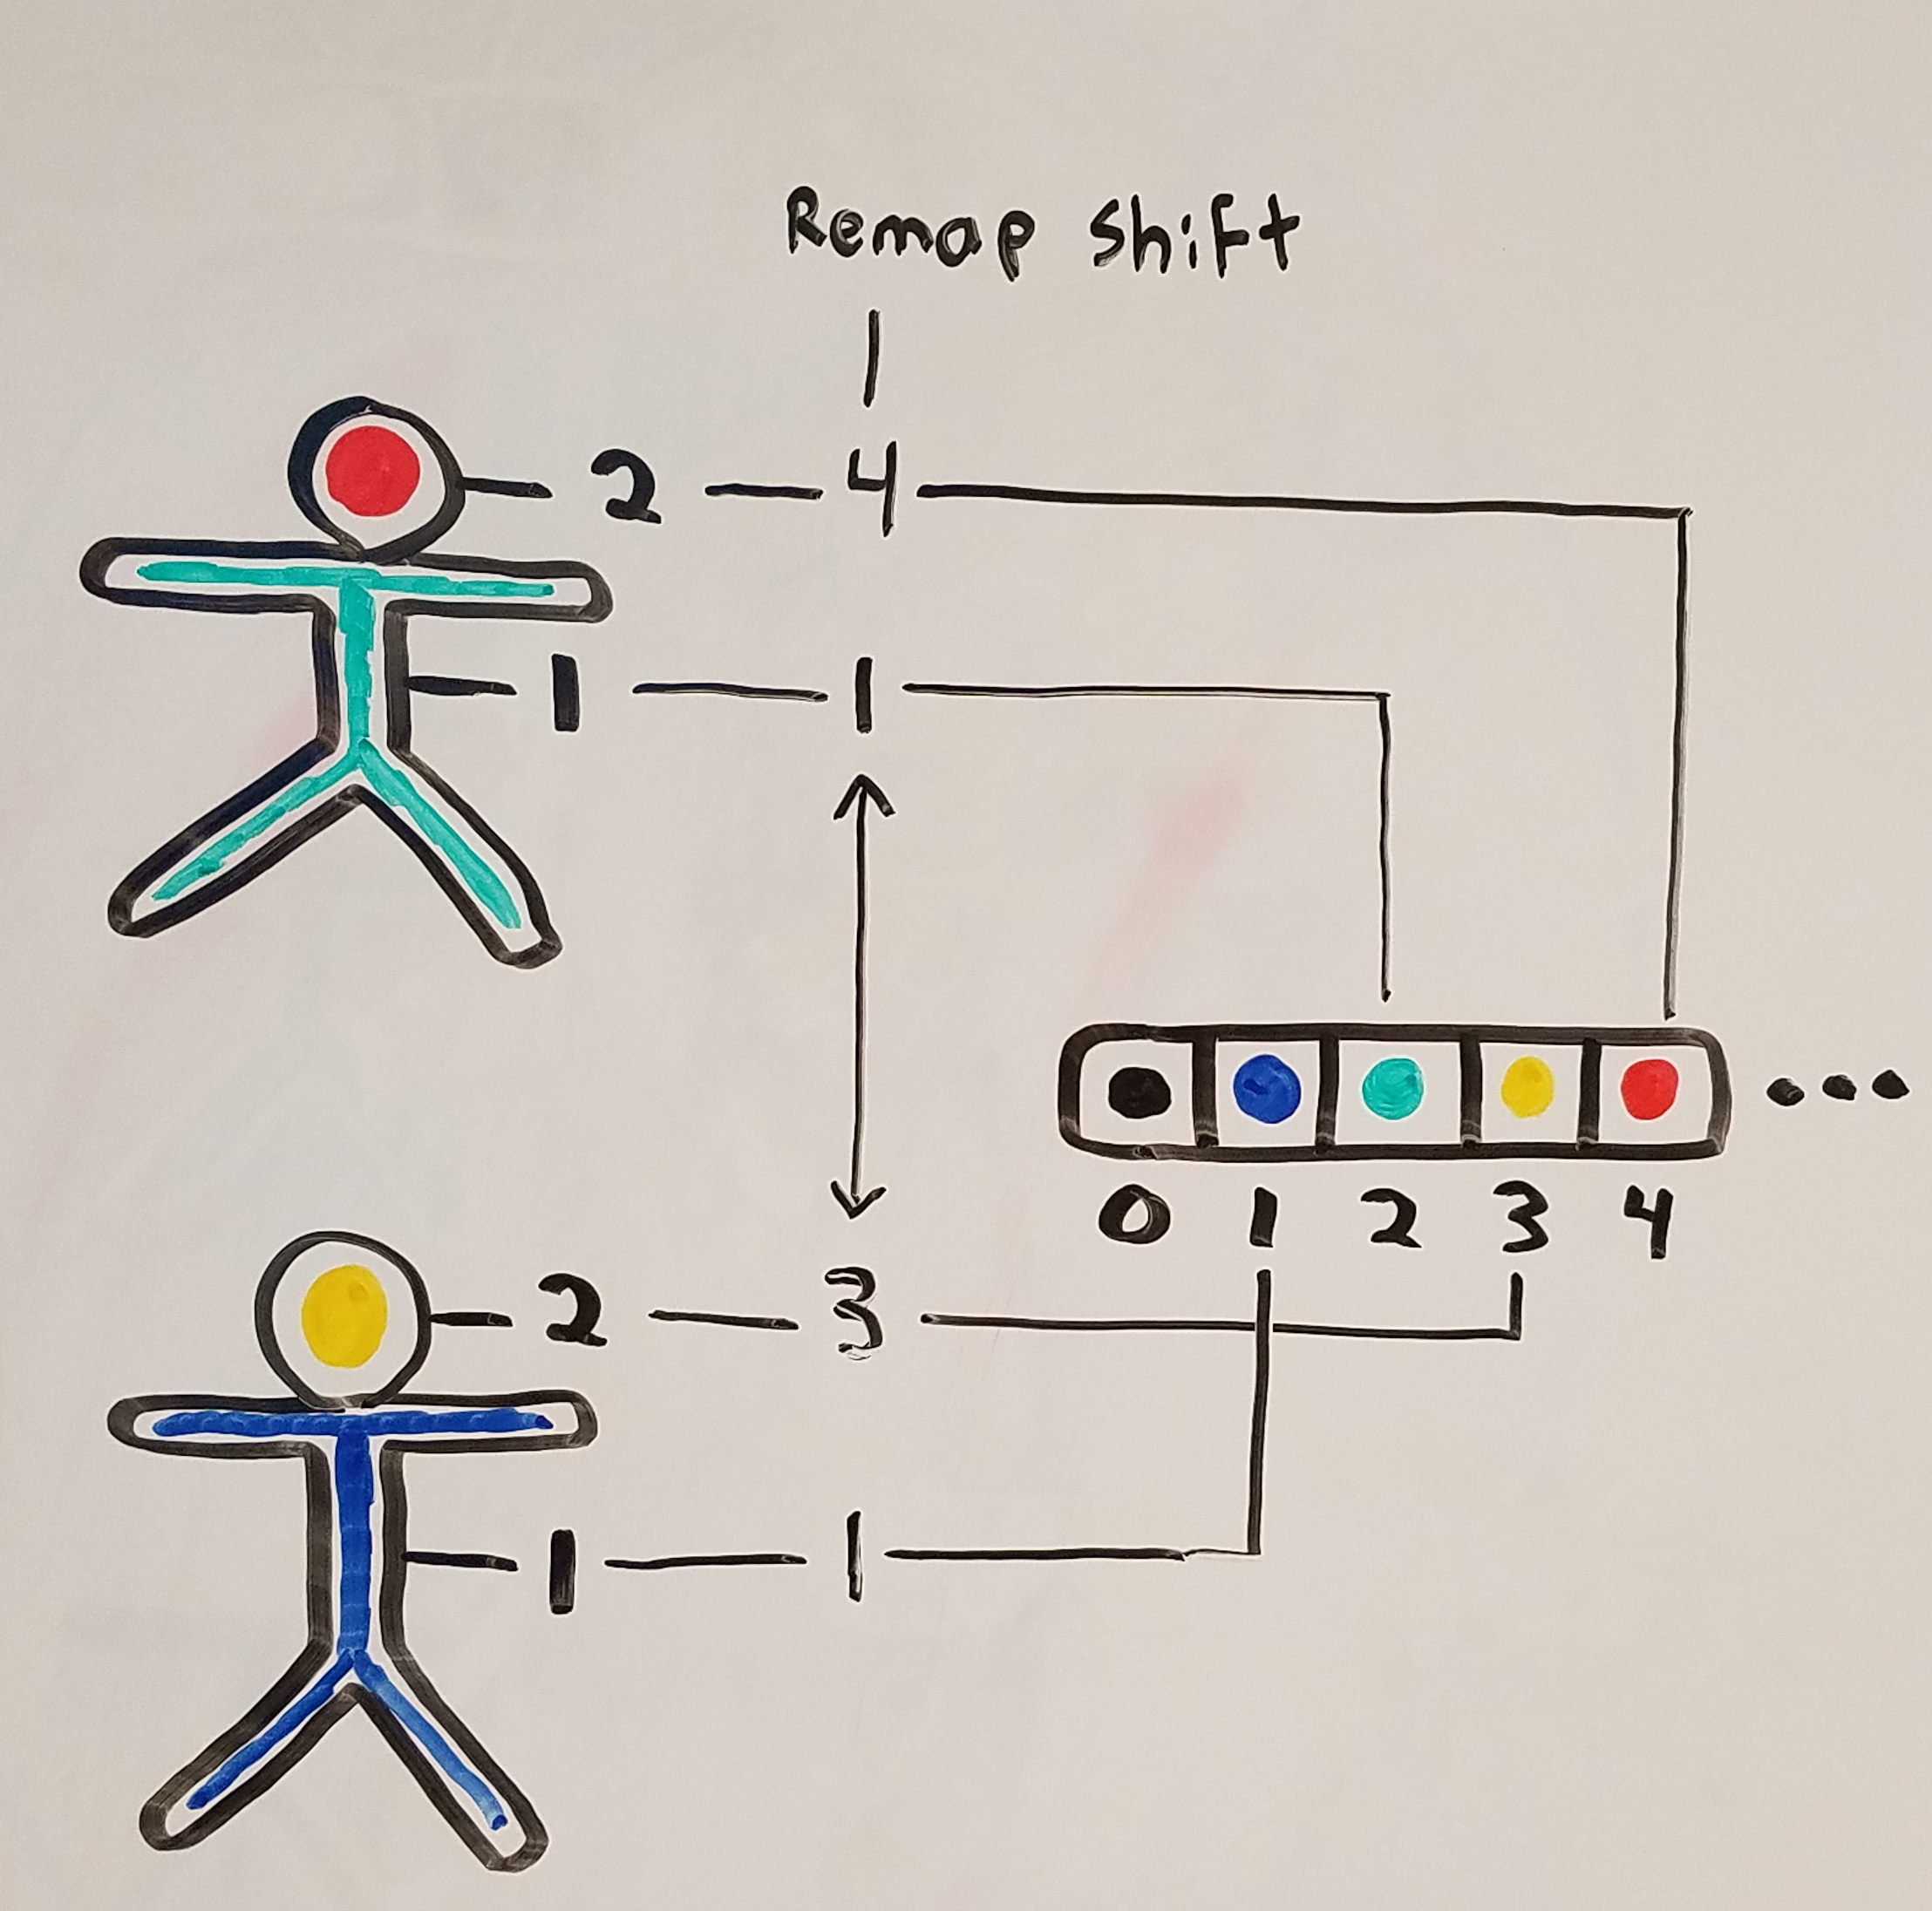 Remap Shift
2 4
1 1
0 1 2 3 4
2 3
1 1